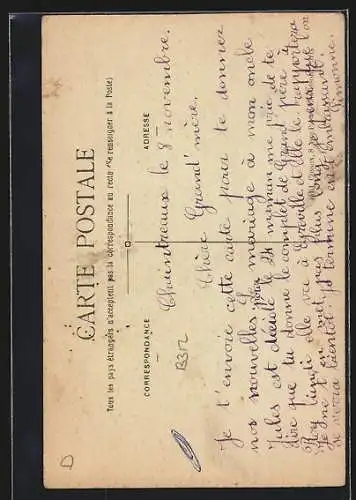 CARTE POSTALE
Tous les pays étrangers n'acceptent pas la correspondance au recto (Se renseigner à la Poste)
CORRESPONDANCE
ADRESSE
B312
D
Chaintreaux le 8 novembre.
Chère Grand'mère,
Je t'envoie cette carte pour te donner
nos nouvelles, pour mariage à mon oncle
Jules est décidé le 24 maman me prie de te
dire que tu donne le complet de grand père à
l'unti elle va à Egreville et elle le rapportera
Je ne t'en met pas plus long je pense que l'on
se verra bientôt. Je termine en t'embrassant.
Simonne.